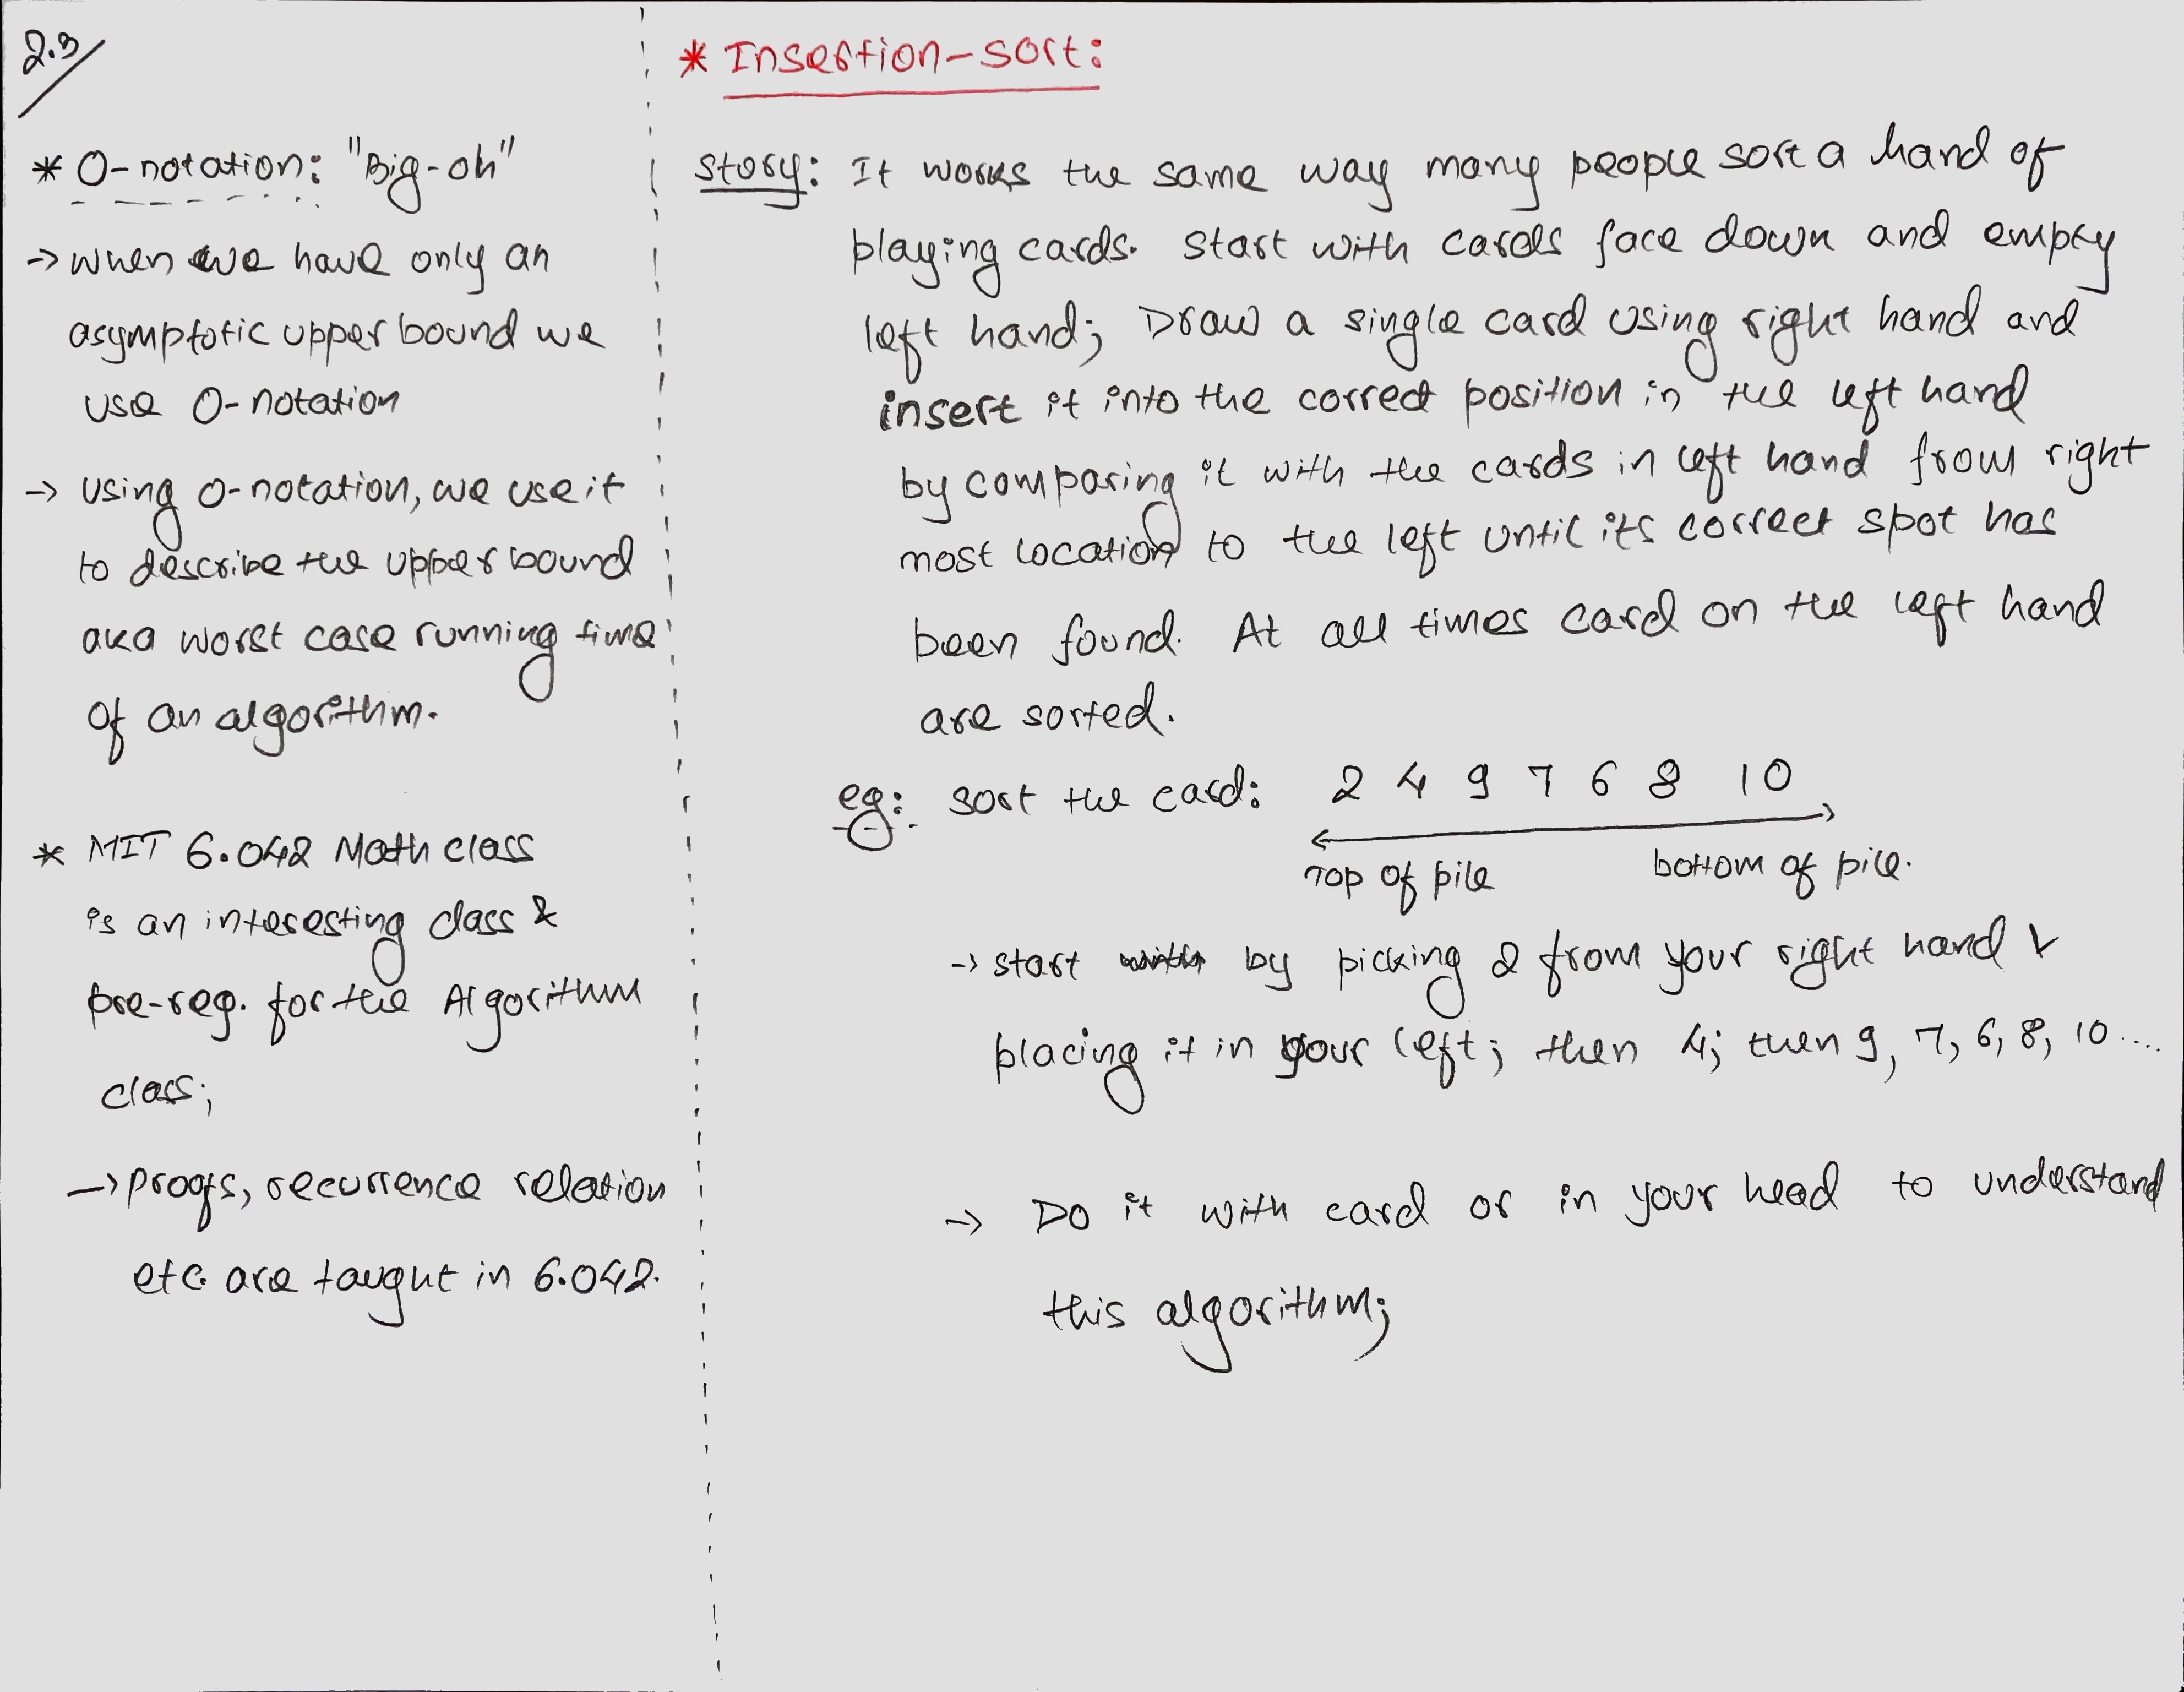 2.3
* O-notation: "Big-oh"
-> when we have only an
asymptotic upper bound we
use O-notation
-> using O-notation, we use it
to describe the upper bound
aka worst case running time
of an algorithm.
* MIT 6.042 Math class
is an interesting class &
pre-req. for the Algorithm
class;
-> proofs, recurrence relation
etc. are taught in 6.042.
* Insertion-sort:
story: It works the same way many people sort a hand of
playing cards. Start with cards face down and empty
left hand; Draw a single card using right hand and
insert it into the correct position in the left hand
by comparing it with the cards in left hand from right
most location to the left until its correct spot has
been found. At all times card on the left hand
are sorted.
eg: sort the card: 2 4 9 7 6 8 10
Top of pile bottom of pile.
-> start by picking 2 from your right hand &
placing it in your left; then 4; then 9, 7, 6, 8, 10....
-> Do it with card or in your head to understand
this algorithm;